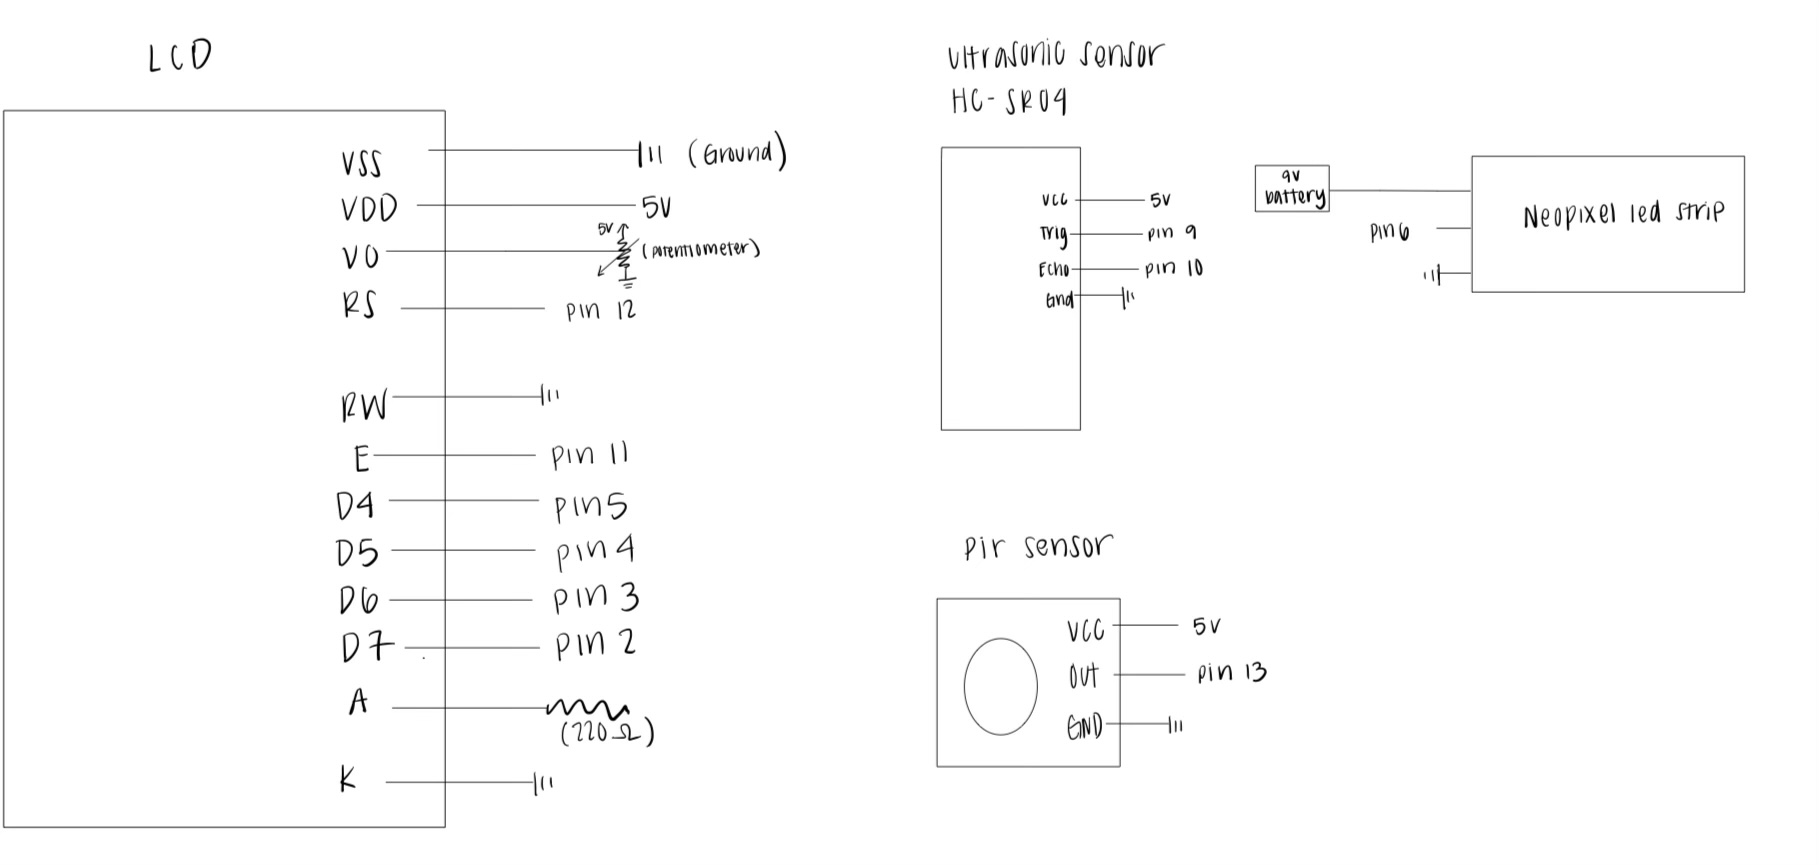 LCD
VSS (Ground)
VDD 5V
5V
VO (potentiometer)
RS pin 12
RW
E pin 11
D4 pin5
D5 pin4
D6 pin 3
D7 pin 2
A
(220 Ω)
K
Ultrasonic sensor
HC-SR04
VCC 5V
Trig pin 9
Echo pin 10
Gnd
9V
battery
Neopixel led strip
pin6
pir sensor
VCC 5V
OUT pin 13
GND